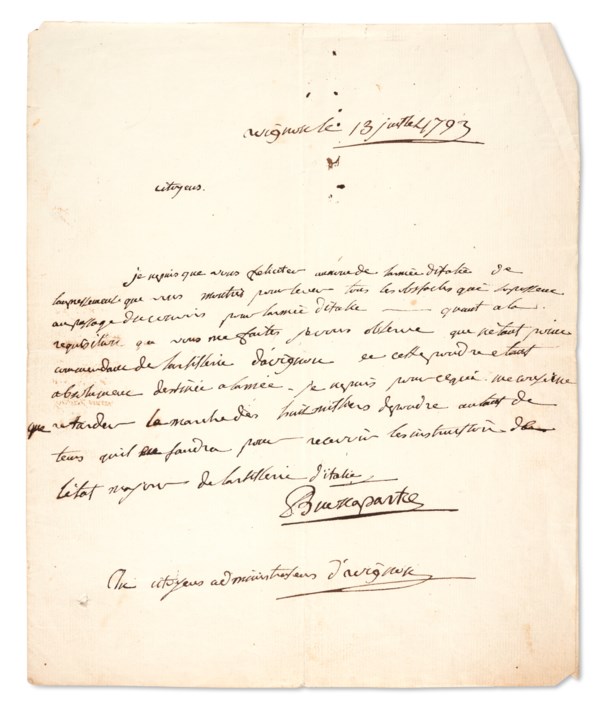 avignon le 13 juillet 1793
citoyens.
je ne puis que vous feliciter au nom de larmée ditalie de
lempressement que vous montrés pour lever tous les obstacles qui sopposent
au passage du convoi pour larmée d'italie — quant a la
requisition que vous me faites je vous observe que n'etant point
commandant de lartillerie d'avignon et cette poudre etant
absolument destinée a larmée. je ne puis pour ce qui me concerne
que retarder la marche des huit milliers de poudre autant de
tems qu'il faudra pour recevoir les instructions de
l'état major de lartillerie d'italie
Buonaparte
citoyens administrateurs d'avignon